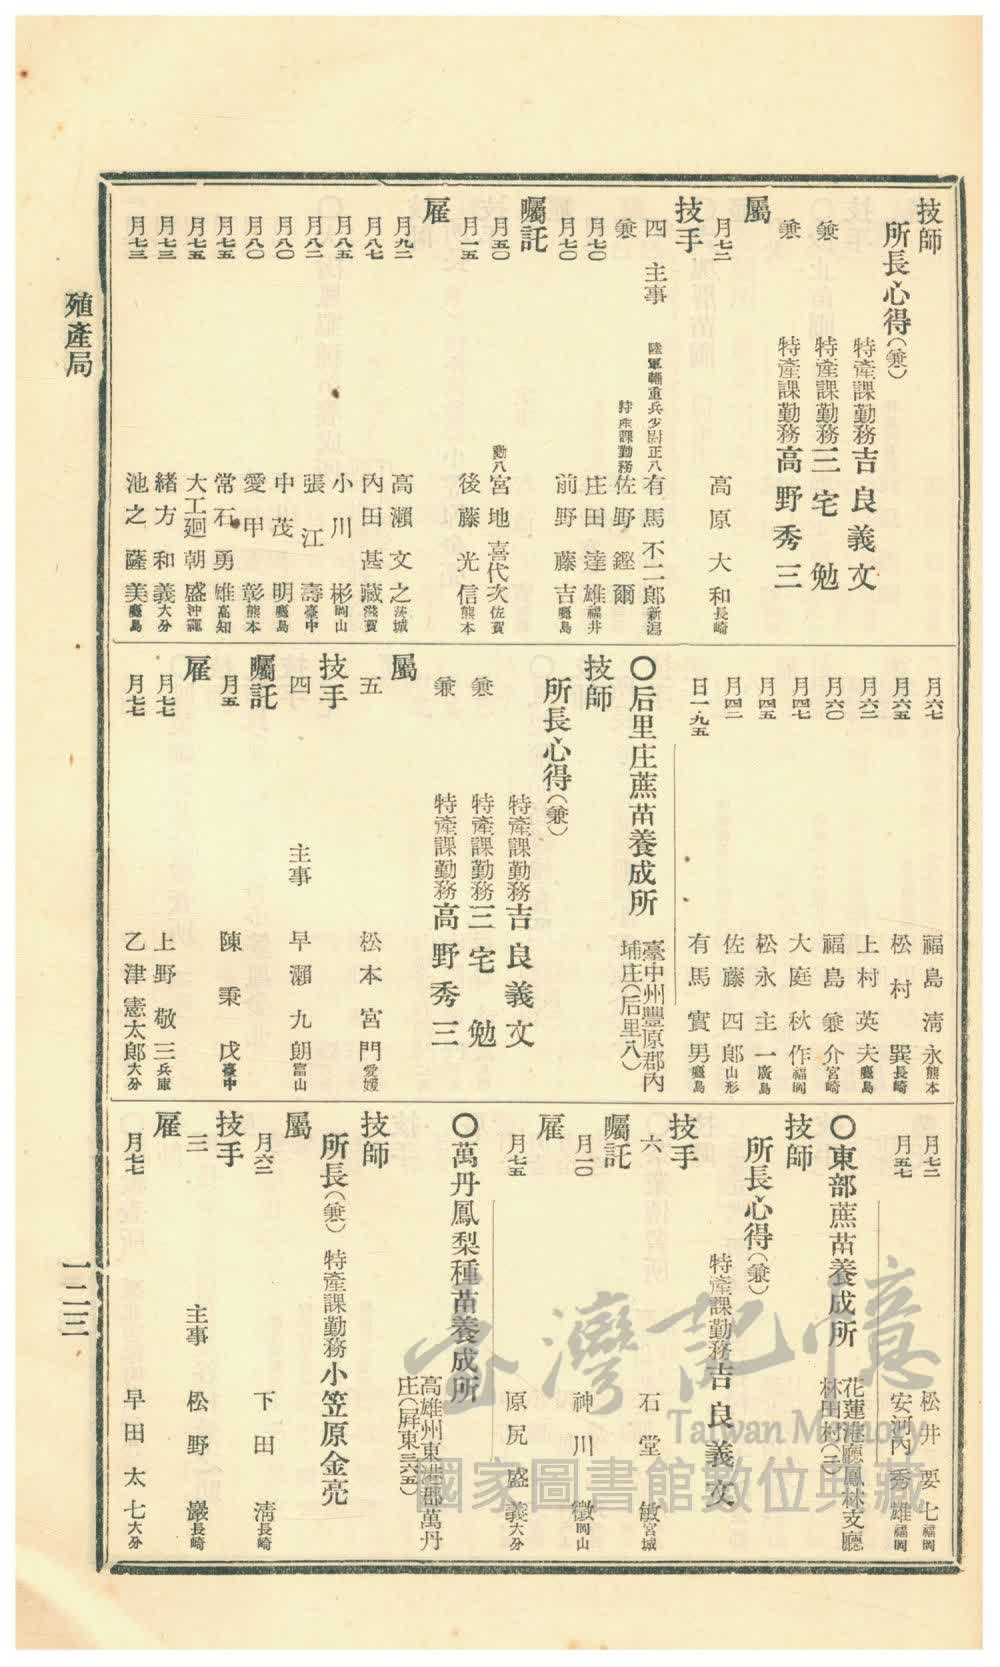 技師
所長心得(兼) 特產課勤務 吉良義文
兼 特產課勤務 三宅勉
兼 特產課勤務 高野秀三
屬
月七二 高原大和 長崎
技手
四 主事 陸軍輜重兵少尉正八 有馬不二郎 新潟
兼 特產課勤務 佐野鏗爾
月七〇 庄田達雄 福井
月七〇 前野藤吉 鹿島
囑託
月五〇 勳八 宮地喜代次 佐賀
月一五 後藤光信 熊本
雇
月九二 高瀨文之 茨城
月八七 內田甚藏 滋賀
月八五 小川彬 岡山
月八二 張江壽 臺中
月八〇 中茂明 鹿島
月八〇 愛甲彰 熊本
月七五 常石勇雄 高知
月七五 大工廻朝盛 沖繩
月七三 緒方和義 大分
月七三 池之薩美 鹿島
月六七 福島淸永 熊本
月六五 松村巽 長崎
月六二 上村英夫 鹿島
月六〇 福島兼介 宮崎
月四七 大庭秋作 福岡
月四五 松永主一 廣島
月四二 佐藤四郎 山形
日一、九五 有馬實男 鹿島
〇后里庄蔗苗養成所 臺中州豐原郡內
埔庄(后里八)
技師
所長心得(兼) 特產課勤務 吉良義文
兼 特產課勤務 三宅勉
兼 特產課勤務 高野秀三
屬
五 松本宮門 愛媛
技手
四 主事 早瀨九朗 富山
囑託
月五 陳秉戊 臺中
雇
月七七 上野敬三 兵庫
月七七 乙津憲太郎 大分
月七二 松井要七 福岡
月五七 安河內秀雄 福岡
〇東部蔗苗養成所 花蓮港廳鳳林支廳
林田村(三)
技師
所長心得(兼) 特產課勤務 吉良義文
技手
六 石堂敏 宮城
囑託
月一〇 神川徵 岡山
雇
月七五 原尻盛義 大分
〇萬丹鳳梨種苗養成所 高雄州東港郡萬丹
庄(屛東三六五)
技師
所長(兼) 特產課勤務 小笠原金亮
屬
月六二 下田淸 長崎
技手
三 主事 松野巖 長崎
雇
月七七 早田太七 大分
殖產局
一二三
臺灣記憶
Taiwan Memory
國家圖書館數位典藏